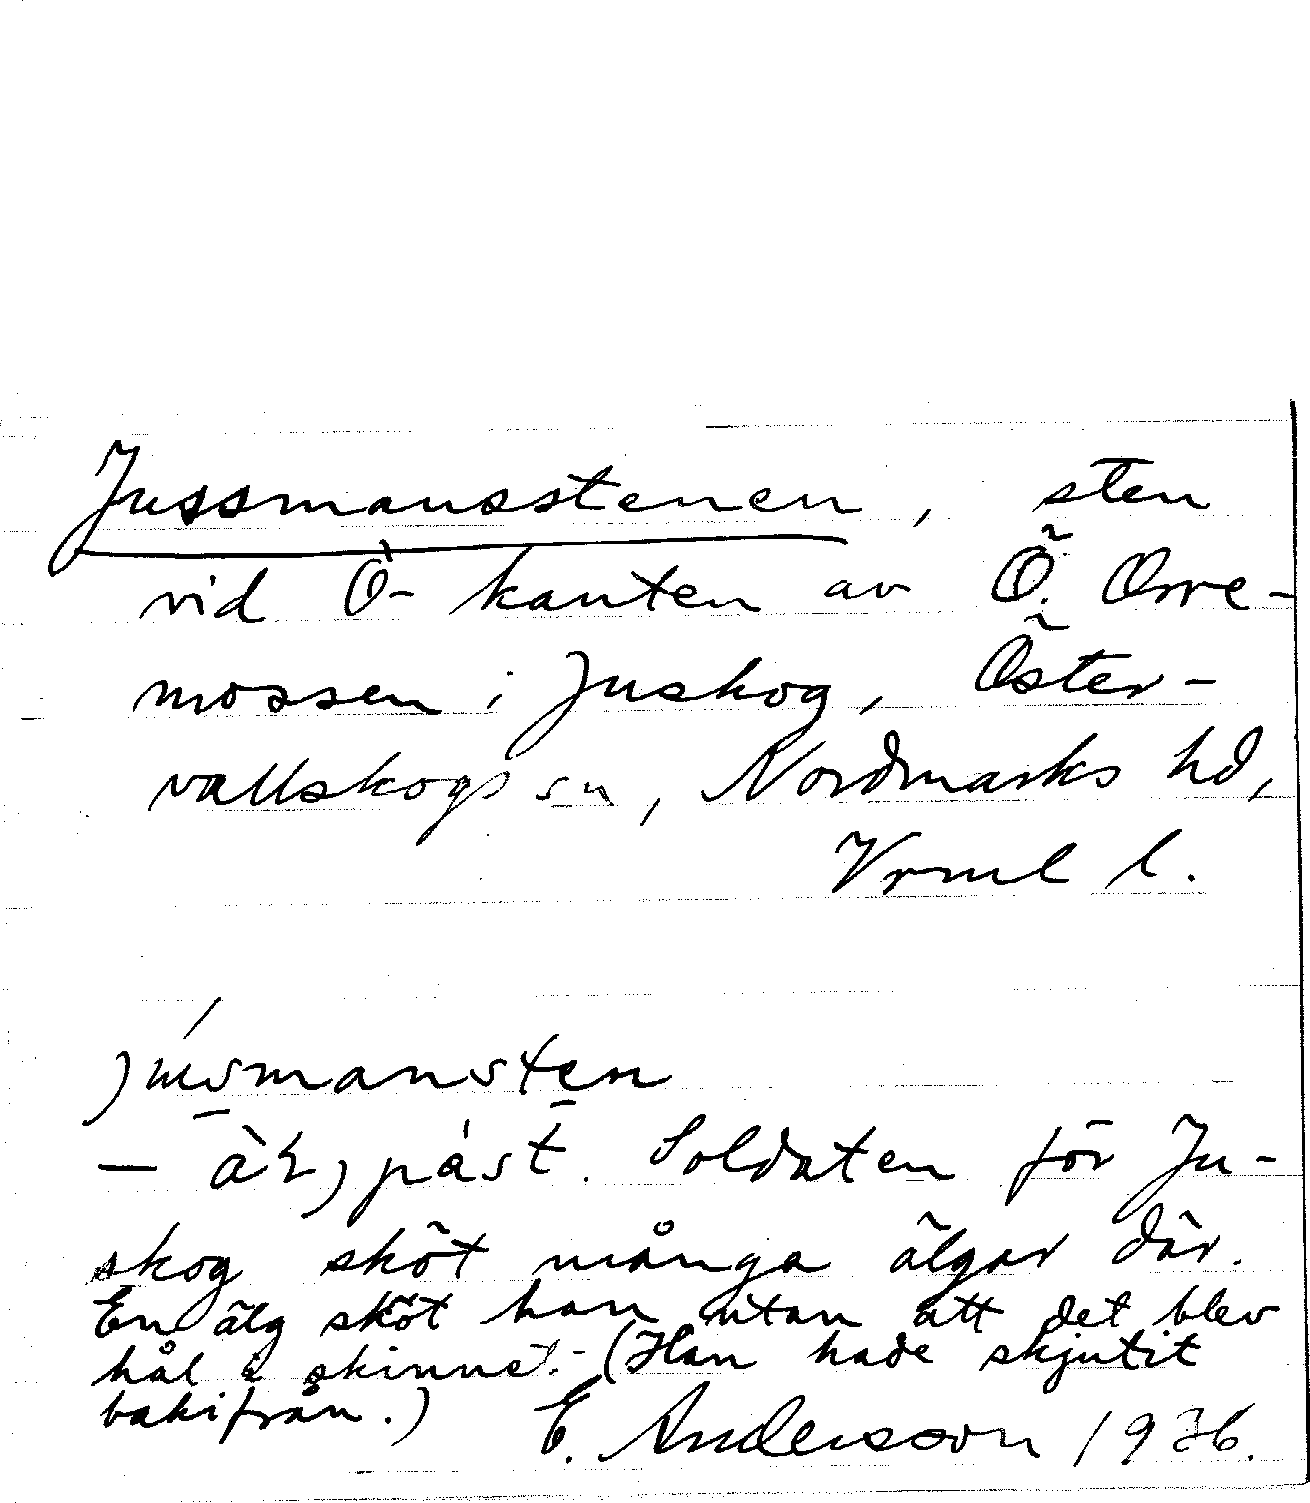 Jussmansstenen, sten
vid Ö- kanten av Ö. Orre-
mossen i Juskog, Öster-
vallskogs sn, Nordmarks hd,
Vrml l.
júsmansten
— äz, påst. Soldaten för Ju-
skog sköt många älgar där.
En älg sköt han utan att det blev
hål i skinnet. - (Han hade skjutit
bakifrån.)
E. Andersson 1936.